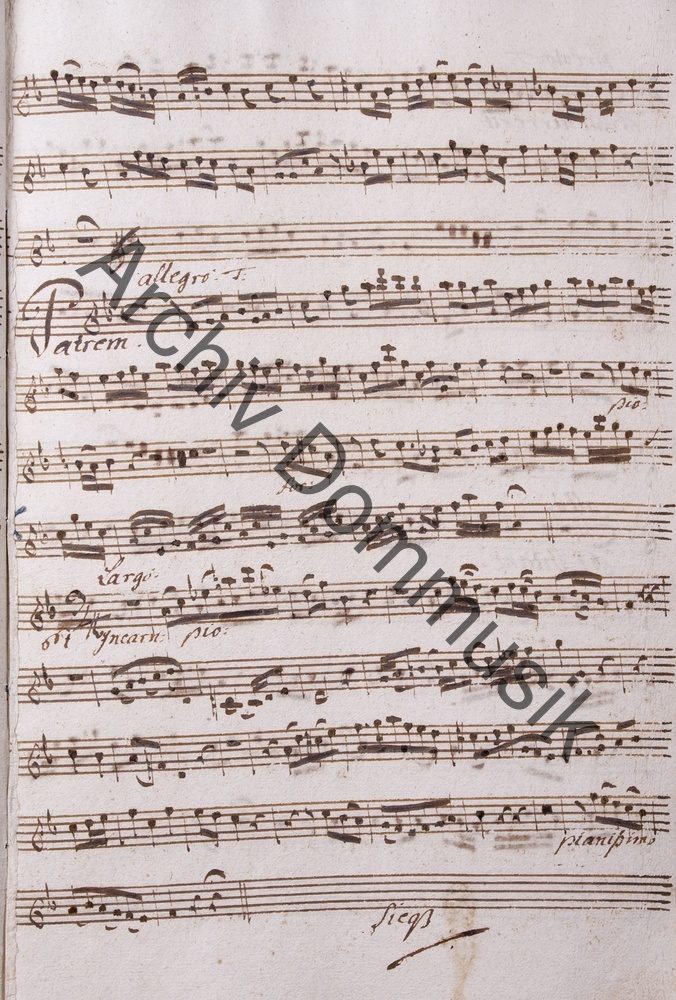 allegro. T:
Patrem.
pio:
Largo.
et Incarn: pio:
pianißimo
sieqß
Archiv Dommusik